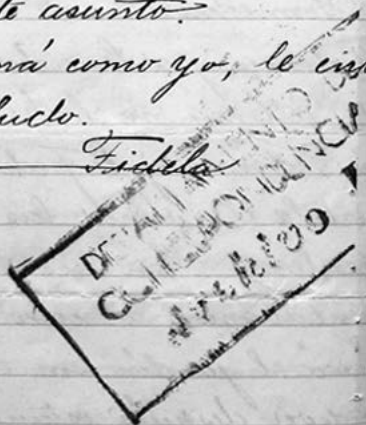 te asunto.
má como yo, le
ludo.
Fidela
DEPARTAMENTO
CORRESPONDENCIA